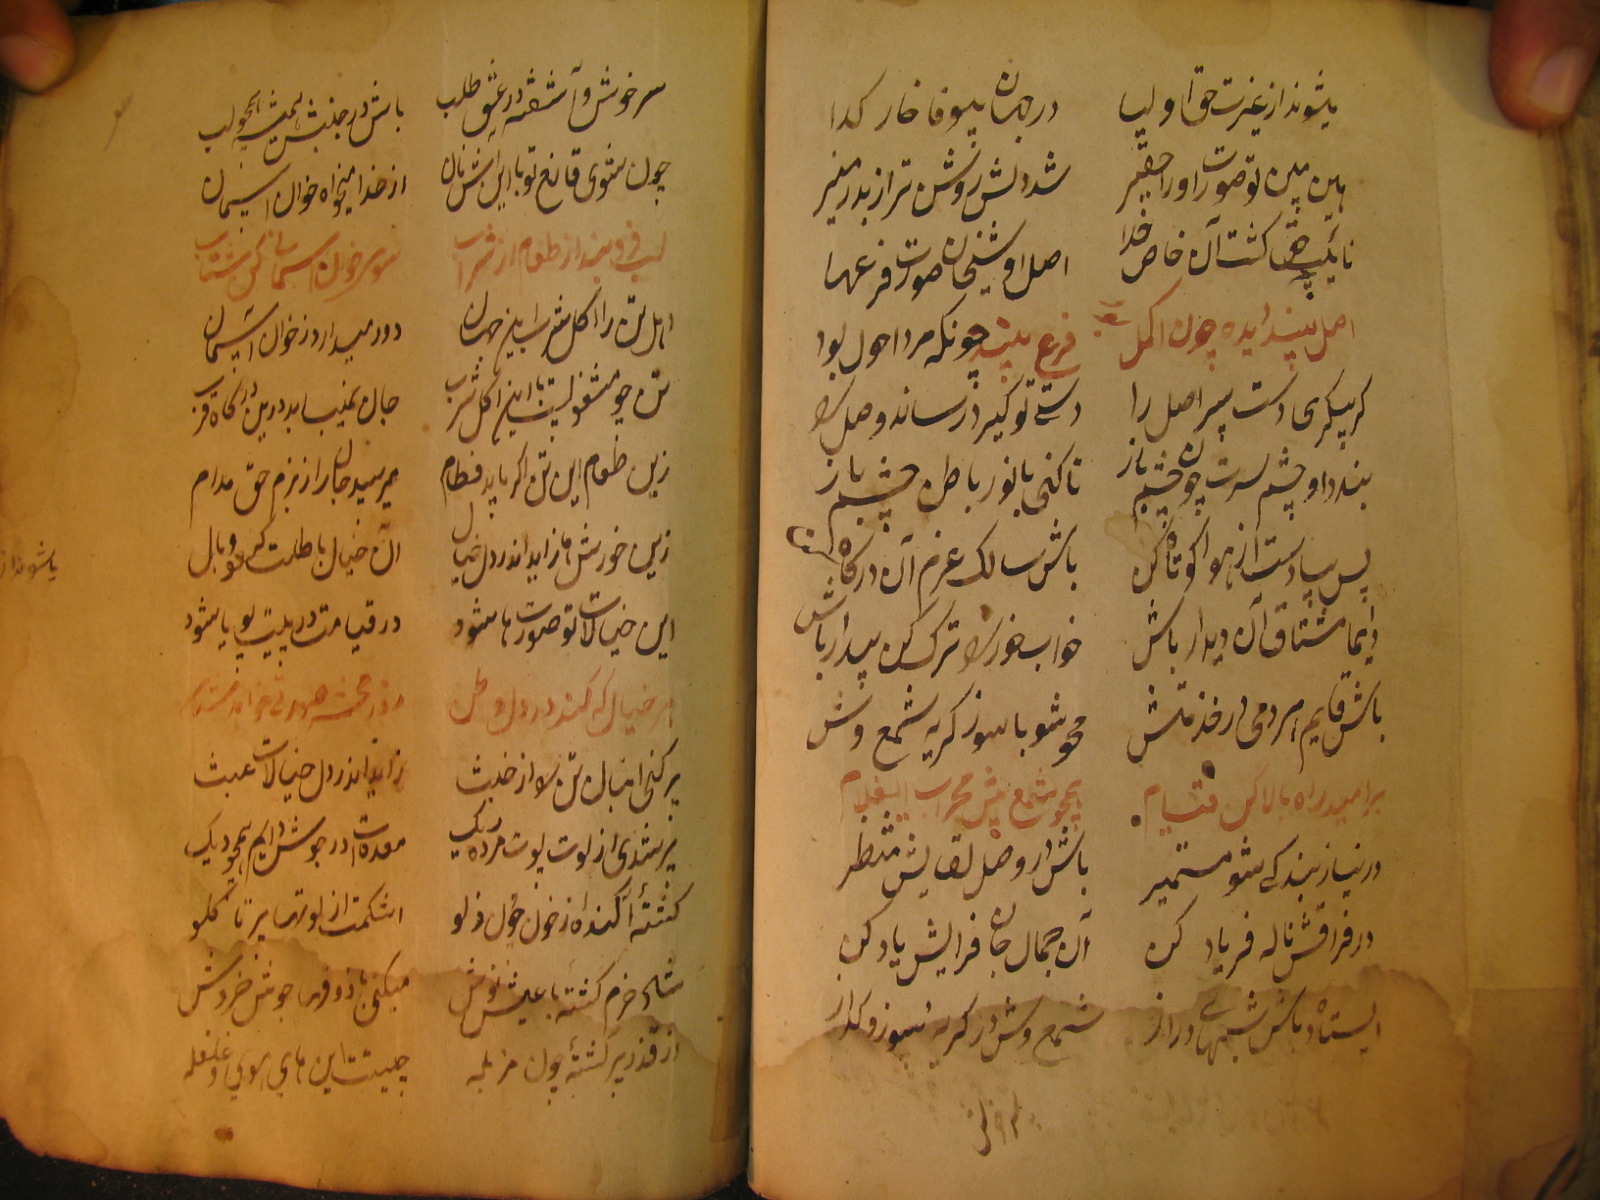 میشوند از غیرت حق اولیا در جهان بیوفا خار گدا
هین مبین تو صورت او را حقیر شد دلش روشن تر از بدر منیر
نایب حق گشت آن خاص خدا اصل او شیخان صورت فرعها
اصل بیند دیده چون اکمل بود فرع بیند چونکه مرد احول بود
گر بگیری دست پیر اصل را دستی تو گیرد رساند وصل را
بند دار و چشم سرت چون چشم باز تا کنی با نور باطن چشم باز
پس پا و دست از هوا کوتاه کن باش سالک عزم آن درگاه کن
دایما مشتاق آن دیدار باش خواب خور را ترک کن بیدار باش
باش قایم هر دمی در خدمتش محو شو با سوز گریه شمع وش
بر امید راه بالا کن قیام همچو شمع پیش محراب ای غلام
در نیاز بندگی شو مستمر باش در وصل لقایش منتظر
در فراقش ناله فریاد کن آن جمال جان فزایش یاد کن
ایستاده باش شبهای دراز شمع وش در گریه سوز و گداز
سرخوش و آشفته در عشق طلب باش در جنبش همیشه همچو لب
چون شوی قانع تو با این شش نان از خدا میخواه خوان آسمان
لب فرو بند از طعام از شراب سوی خوان آسمانی کن شتاب
اهل تن را اکل شرب این جهان دور میدارد ز خوان آسمان
تن چو مشغولست با این اکل شرب جان نمییابد درین درگاه قرب
زین طعام این تن اگر باید فطام میرسید جان را ز بزم حق مدام
زین خورش ها زاید اندر دل خیال آن خیال با ظلمت کبر و وبال
این خیالات تو صورت ها شود در قیامت در پیت پویا شود
هر خیالی که کند در دل وطن روز محشر صورتی خواهد شدن
پر کنی انبال تن را از خبث زاید اندر دل خیالات عبث
پر شدی از لوت پوت مرده ریک معده ات در جوش دایم همچو دیک
گشته آکنده ز خون چون زلو اشکمت از لوتها پر تا گلو
شاد خرم گشته با عیش نوش میکنی با ذوق ها جوش خروش
از قذر پر گشته چون مزبله چیست این های هوی و غلغله